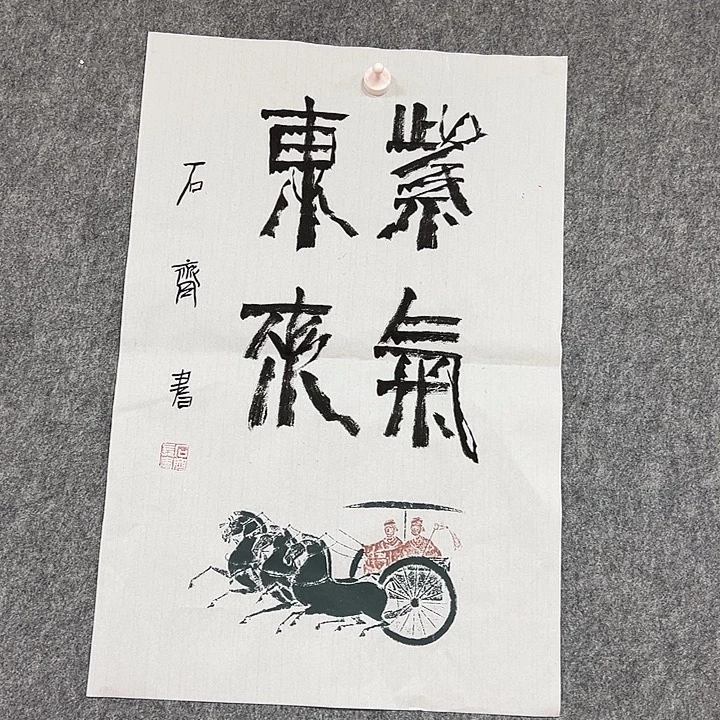 紫氣
東來
石齊書